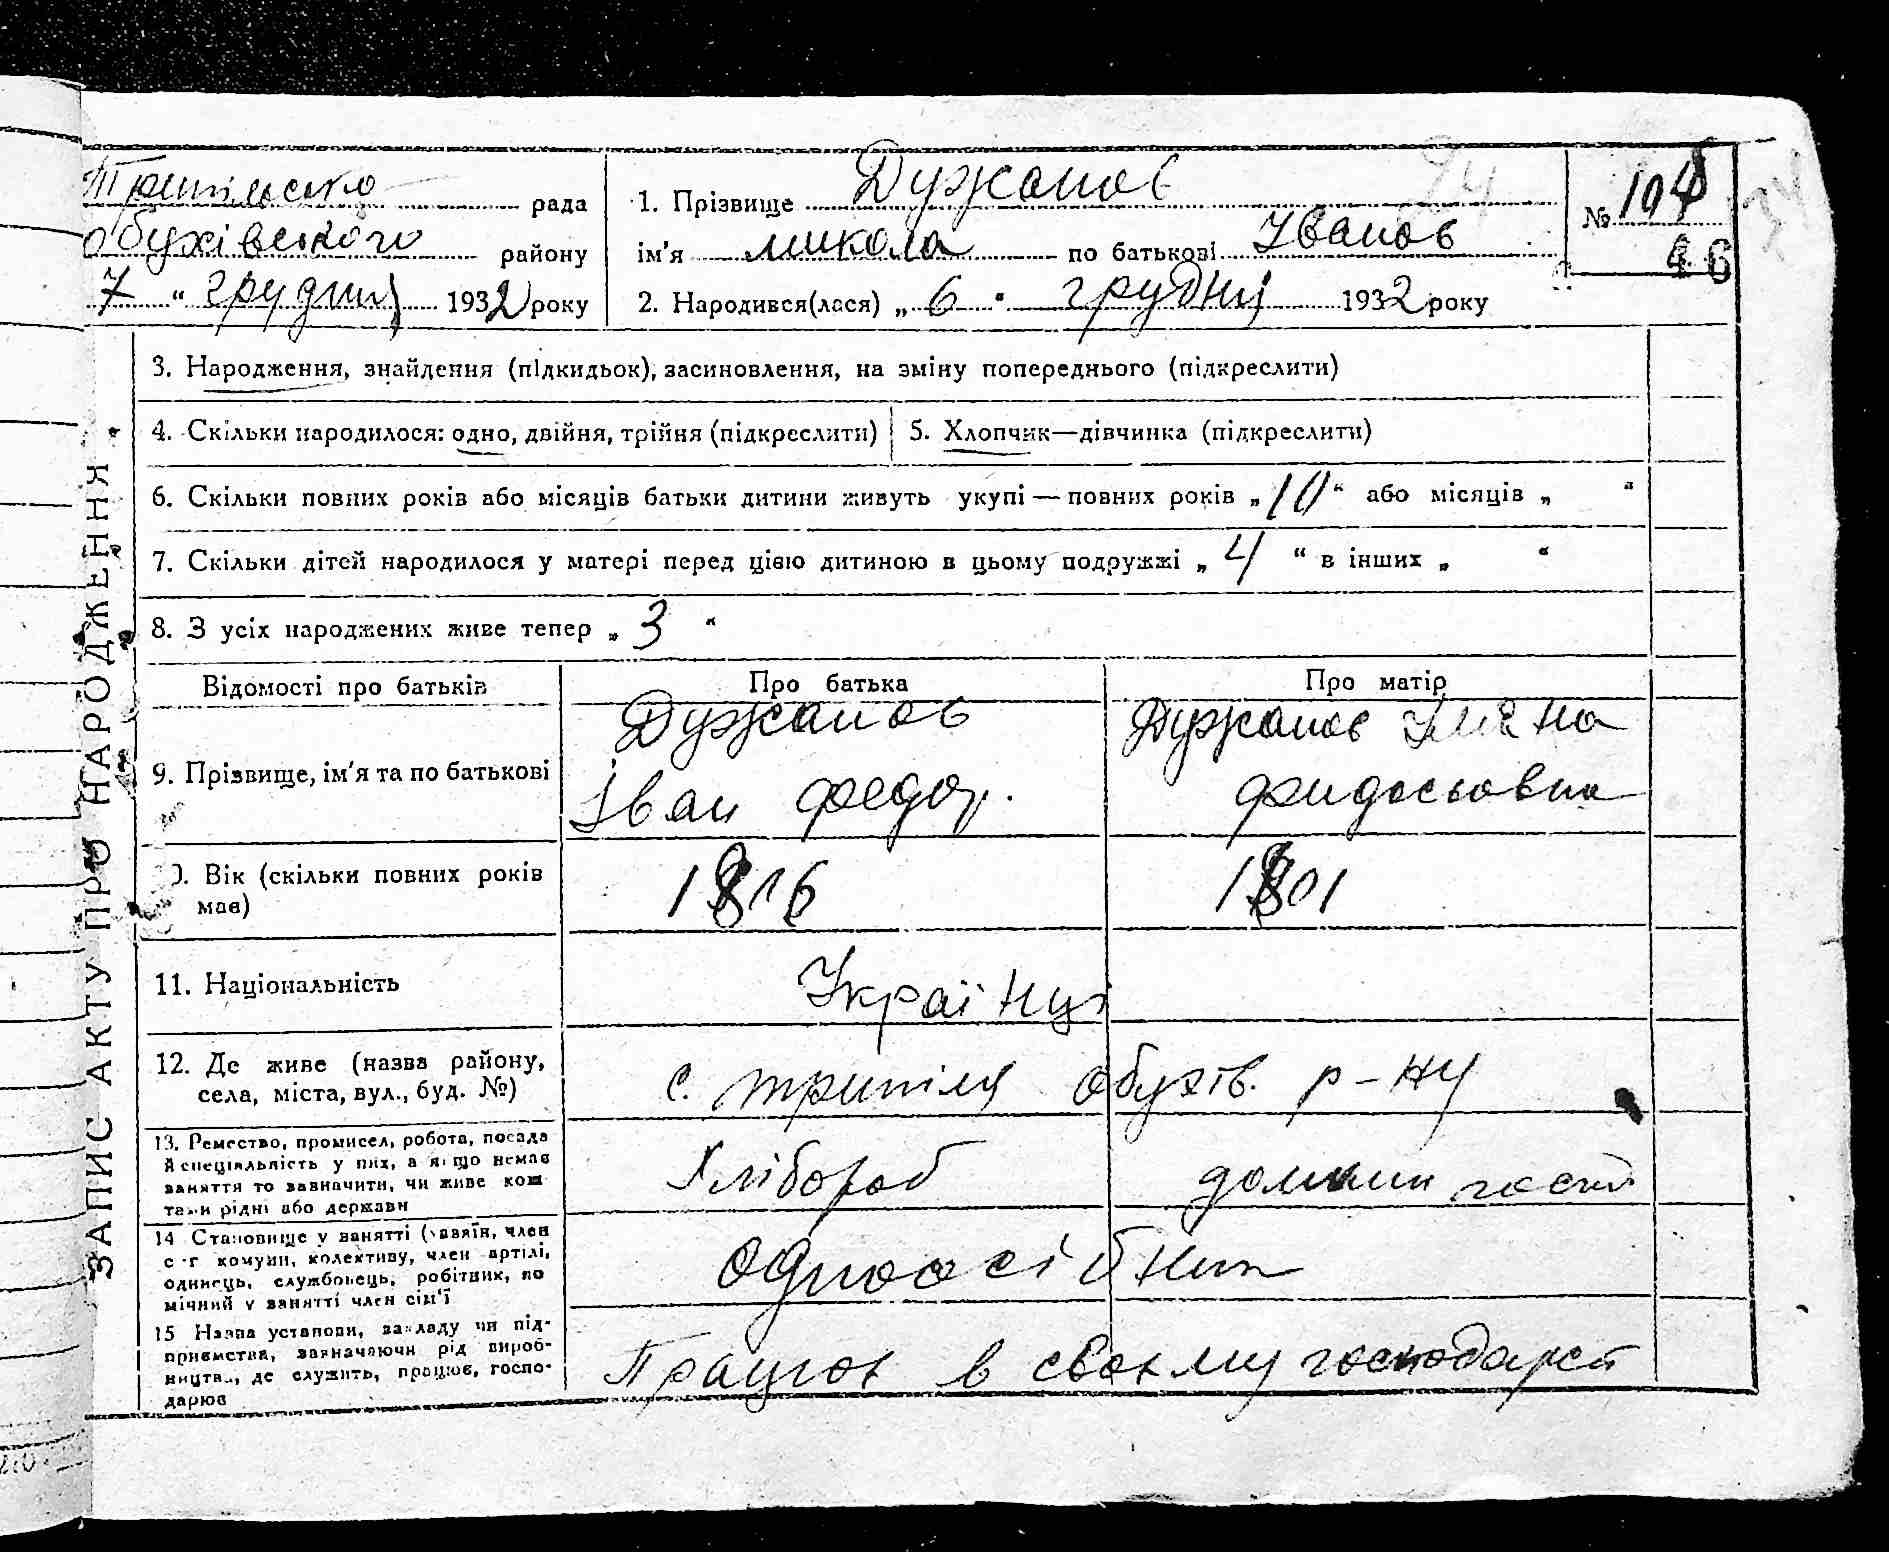 Трипільська рада
Обухівського району
7 " грудня 1932 року
1. Прізвище Дужанов
ім'я микола по батькові Іванов
2. Народився(лася) „ 6 " грудня 1932 року
№ 104
46
24
34
ЗАПИС АКТУ ПРО НАРОДЖЕННЯ
3. Народження, знайдення (підкидьок), засиновлення, на зміну попереднього (підкреслити)
4. Скільки народилося: одно, двійня, трійня (підкреслити)
5. Хлопчик—дівчинка (підкреслити)
6. Скільки повних років або місяців батьки дитини живуть укупі — повних років „ 10 “ або місяців „ “
7. Скільки дітей народилося у матері перед цією дитиною в цьому подружжі „ 4 “ в інших „ “
8. З усіх народжених живе тепер „ 3 “
Відомості про батьків
Про батька
Про матір
9. Прізвище, ім'я та по батькові
Дужанов
Іван федор.
Дужанов
0. Вік (скільки повних років
має)
1901
11. Національність
Українці
12. Де живе (назва району,
села, міста, вул., буд. №)
с. трипілля Обухів. р-ну
13. Ремество, промисел, робота, посада
й спеціяльність у них, а якщо немає
заняття то зазначити, чи живе кош
тами рідні або держави
Хлібороб
домашн госп
14 Становище у занятті (хазяїн, член
с-г комуни, колективу, член артілі,
одинець, службовець, робітник, по
мічний у занятті член сім'ї
Одноосібник
15 Назва установи, закладу чи під-
приємства, зазначаючи рід вироб-
ництва, де служить, працює, госпо-
дарює
Працює в своєму господарст